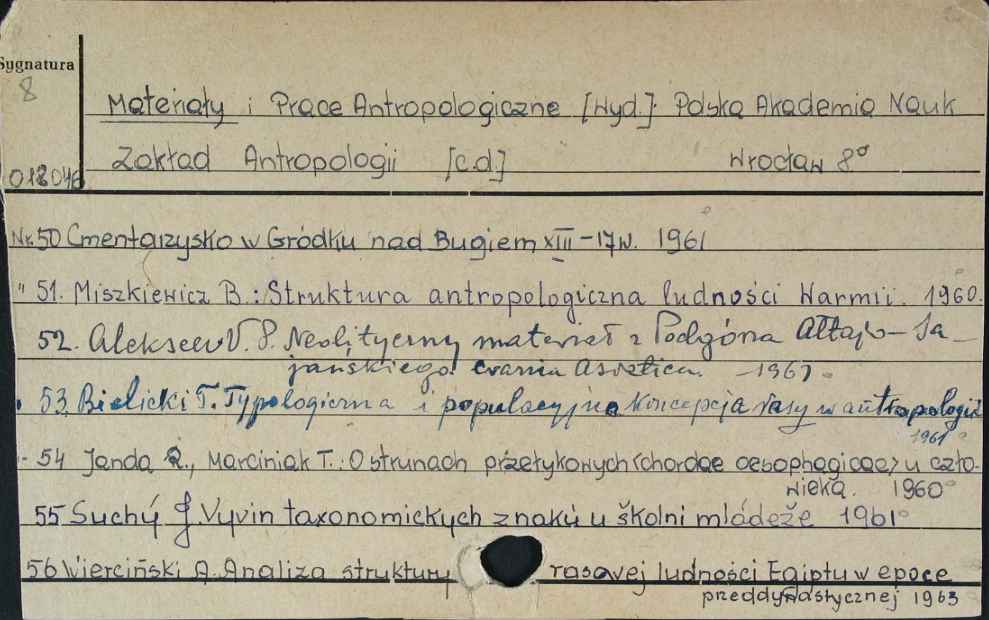 Sygnatura
8
Materiały i Prace Antropologiczne [Wyd.]: Polska Akademia Nauk
Zakład Antropologii [c.d.] Wrocław 8°
012046
Nr. 50 Cmentarzysko w Gródku nad Bugiem XIII - 17 w. 1961
" 51. Miszkiewicz B.: Struktura antropologiczna ludności Warmii. 1960.
52. Alekseev V. P. Neolityczny materiał z Podgórza Ałtajo - Sa-
jańskiego. Crania Asiatica. - 1961
53. Bielicki T. Typologiczna i populacyjna koncepcja rasy w antropologii
1961
- 54 Janda R., Marciniak T.: O strunach przełykowych (chordae oesophagicae) u czło-
wieka. 1960
55 Suchý J. Vývin taxonomickych znaků u školni mládeže 1961
56 Wierciński A. Analiza struktury rasowej ludności Egiptu w epoce
preddynastycznej 1963